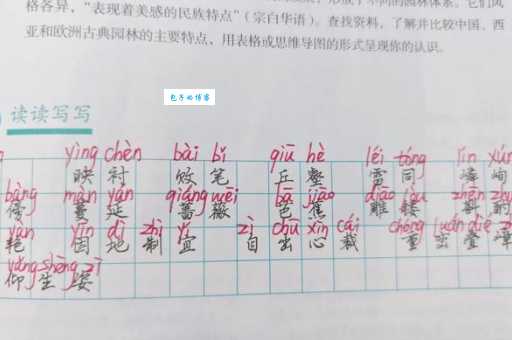 格各异，“表现着美感的民族特点”（宗白华语）。查找资料，了解并比较中国、西
亚和欧洲古典园林的主要特点，用表格或思维导图的形式呈现你的认识。
包子的博客
读读写写
yìng chèn bài bǐ qiū hè léi tóng lín xún
映衬 笔 丘壑 雷同 嶙峋
bàng màn yán qiáng wēi bā jiāo diāo lòu zhēn zhuó
蔓延 蔷薇 芭蕉 雕镂 斟酌
yàn yīn dì zhì yí zì chū xīn cái chóng luán dié
艳 因地制宜 自出心裁 重峦叠嶂
yǎng shēng zī